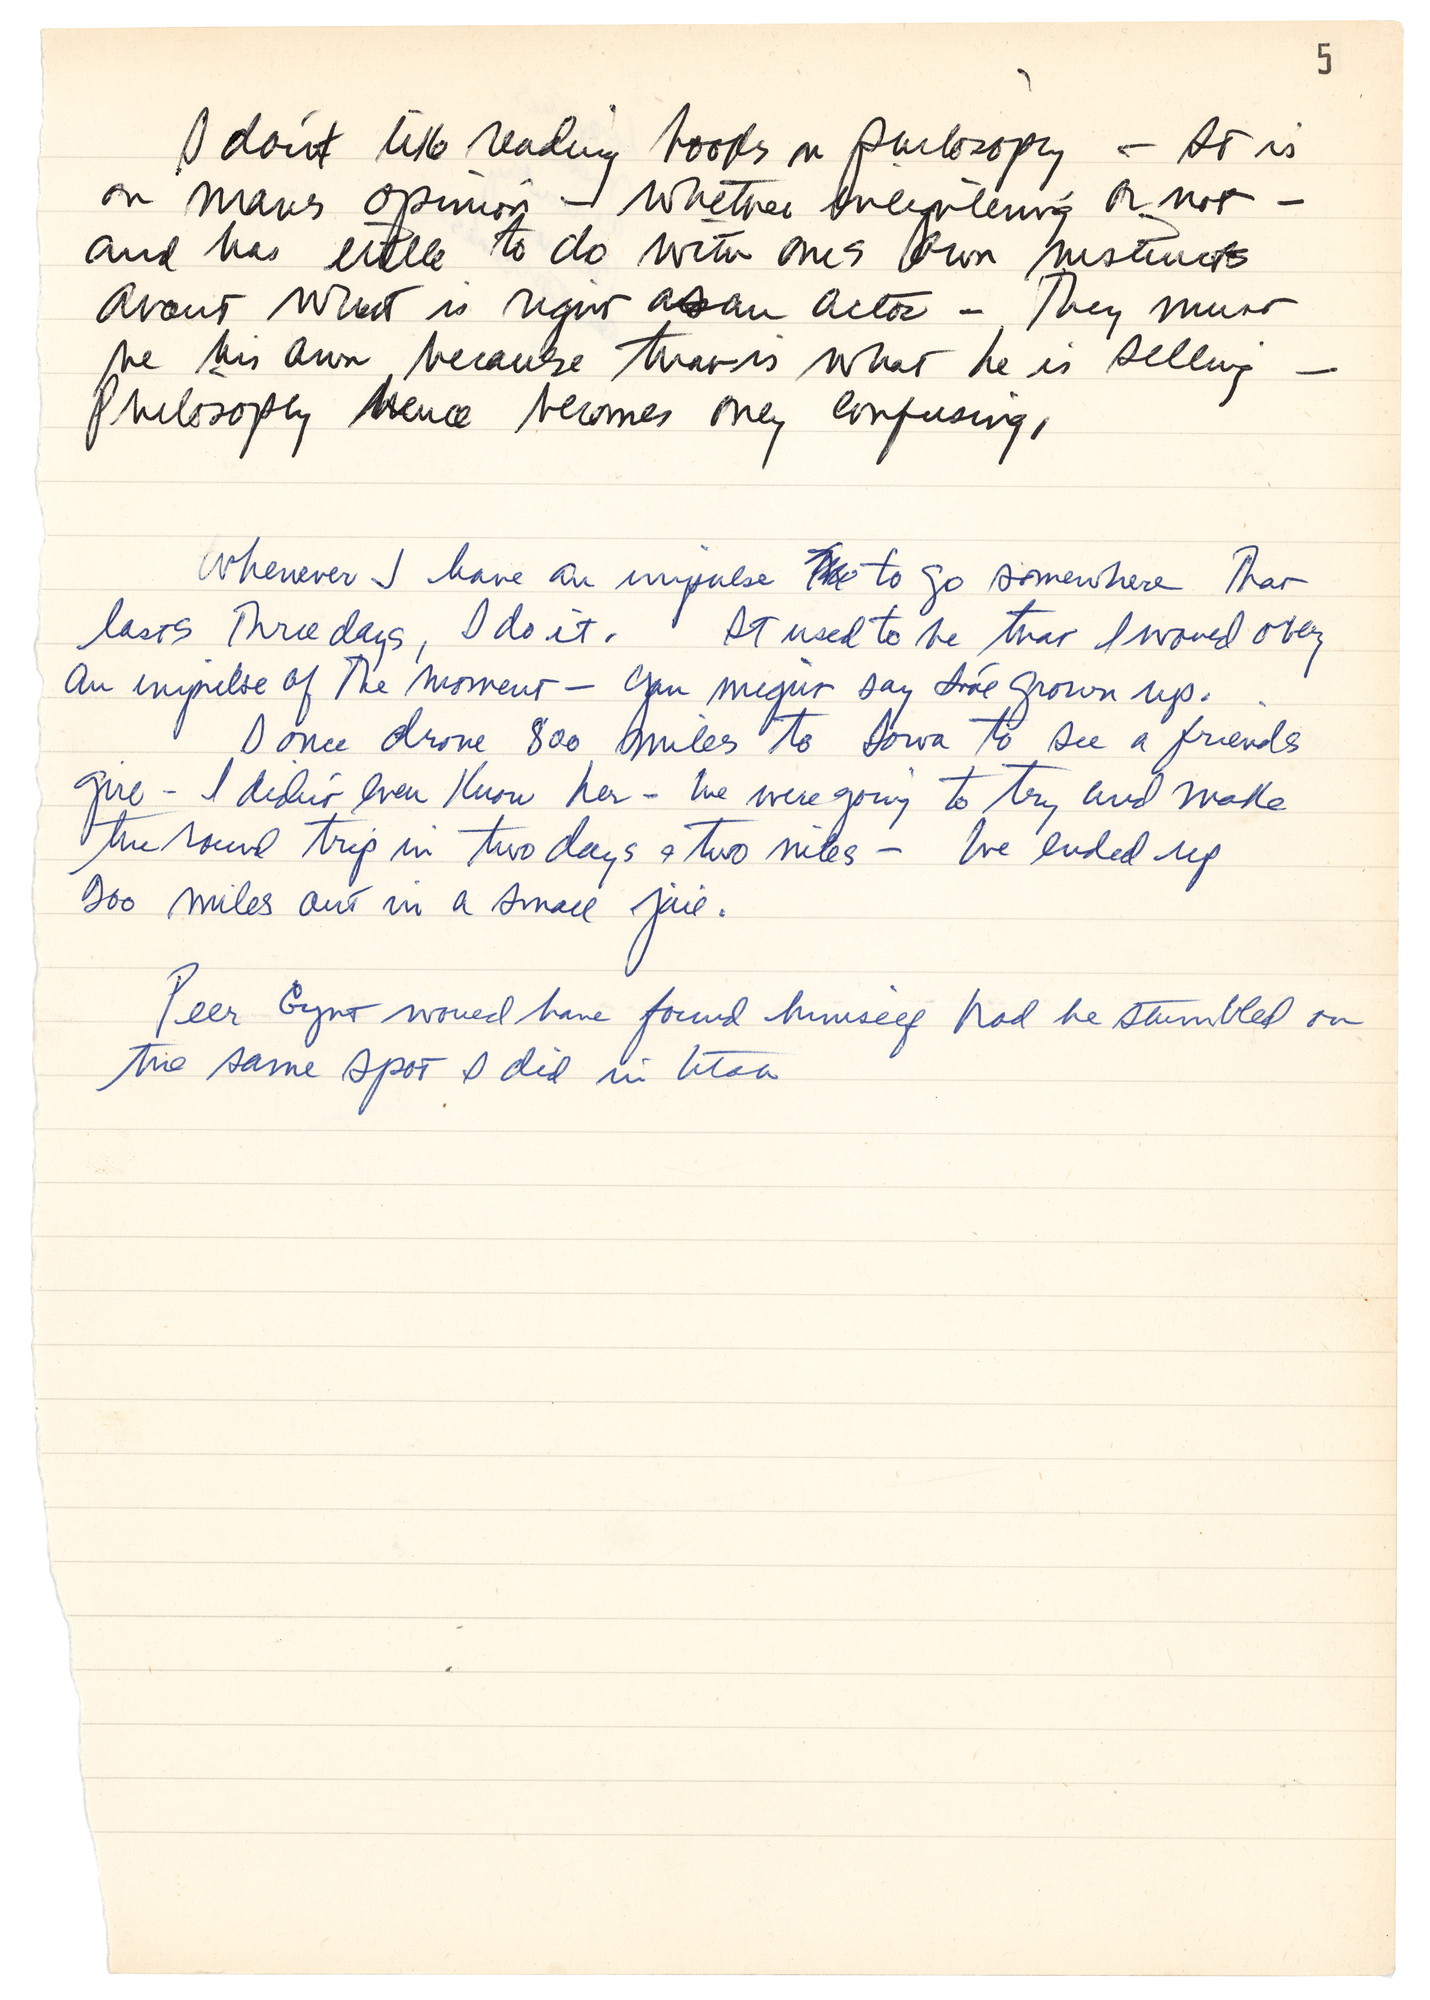 5
I don't like reading books on philosophy - It is
on mans opinion - whether enlightening or not -
and has little to do with ones own instincts
about what is right as an actor - They must
be his own because that is what he is selling -
Philosophy hence becomes only confusing.
Whenever I have an impulse to go somewhere that
lasts three days, I do it. It used to be that I would obey
an impulse of the moment - you might say I've grown up.
I once drove 800 miles to Iowa to see a friends
girl - I didn't even know her - We were going to try and make
the round trip in two days & two nites - We ended up
200 miles out in a small jail.
Peer Gynt would have found himself had he stumbled on
the same spot I did in Utah